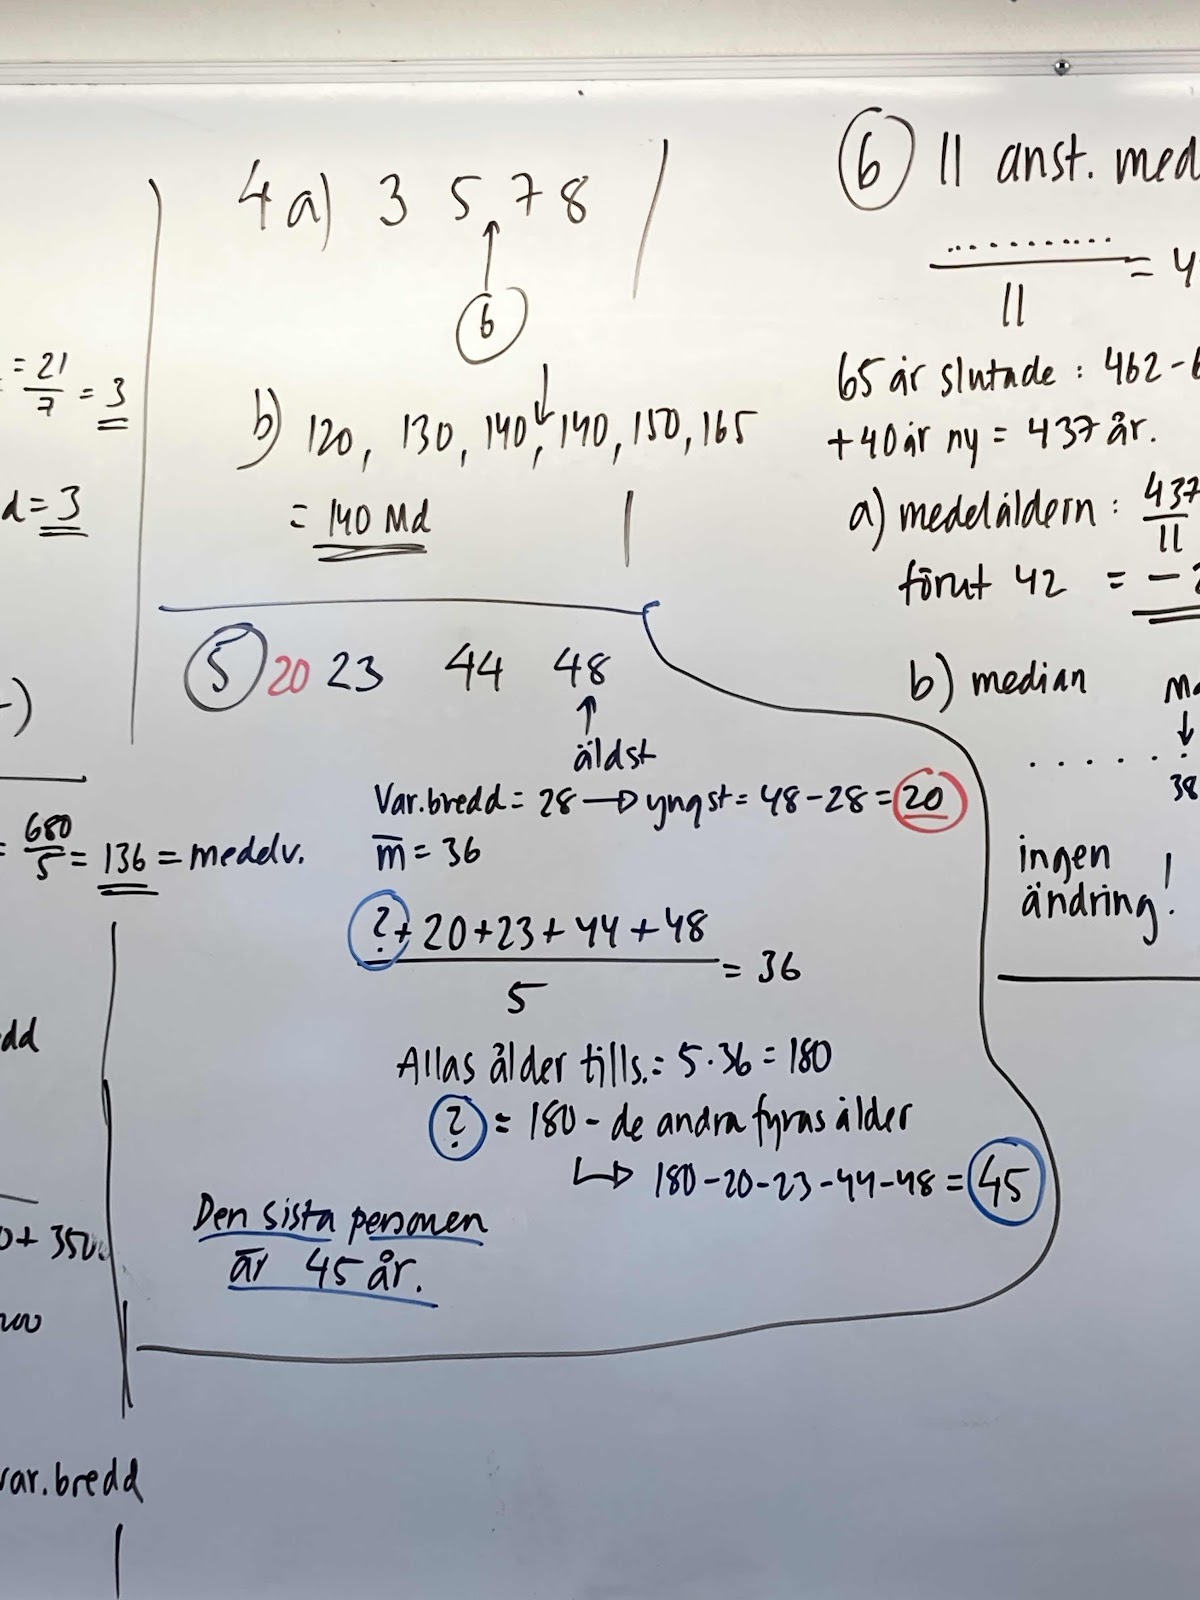 = 21/7 = 3
d = 3
-)
= 680/5 = 136 = medelv.
dd
0 + 350
var.bredd
4 a) 3 5 7 8
6
b) 120, 130, 140, 140, 150, 165
= 140 Md
5 20 23 44 48
äldst
Var.bredd = 28 → yngst = 48 - 28 = 20
m̅ = 36
? + 20 + 23 + 44 + 48
5
= 36
Allas ålder tills. = 5 · 36 = 180
? = 180 - de andra fyras ålder
↳ 180 - 20 - 23 - 44 - 48 = 45
Den sista personen
är 45 år.
6 11 anst. med
...........
11
= 4
65 år slutade : 462 - 6
+ 40 år ny = 437 år.
a) medelåldern : 437/11
förut 42 = - 2
b) median
......
38
ingen
ändring!